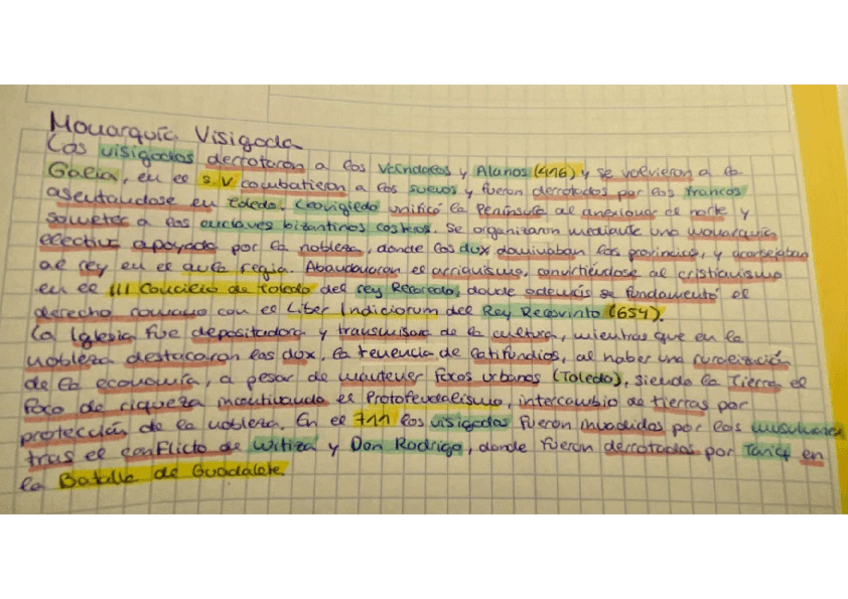 Monarquía Visigoda
Los visigodos derrotaron a los Vándalos y Alanos (416) y se volvieron a la
Galia, en el s.V combatieron a los suevos y fueron derrotados por los francos
asentandose en Toledo. Leovigildo unificó la Península al anexionar el norte y
someter a los enclaves bizantinos costeros. Se organizaron mediante una monarquía
electiva apoyada por la nobleza, donde los dux dominaban las provincias, y aconsejaban
al rey en el aula regia. Abandonaron el arrianismo, convirtiéndose al cristianismo
en el III Concilio de Toledo del rey Recaredo, donde además se fundamentó el
derecho romano con el Liber Iudiciorum del Rey Recesvinto (654).
La Iglesia fue depositadora y transmisora de la cultura, mientras que en la
nobleza destacaron los dux, la tenencia de latifundios, al haber una ruralización
de la economía, a pesar de mantener focos urbanos (Toledo), siendo la Tierra el
foco de riqueza incentivando el Protofeudalismo, intercambio de tierras por
protección de la nobleza. En el 711 los visigodos fueron invadidos por los musulmanes
tras el conflicto de Witiza y Don Rodrigo, donde fueron derrotados por Tariq en
la Batalla de Guadalete.